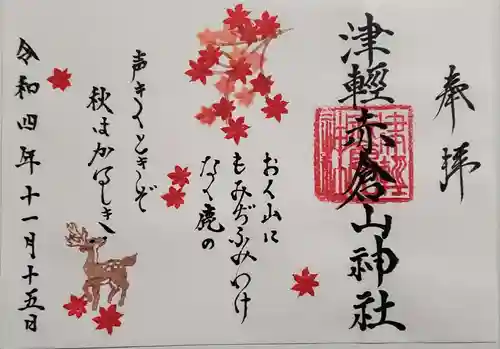 奉拝
津軽赤倉山神社
おく山に
もみぢふみわけ
なく鹿の
声きくときぞ
秋はかなしき
令和四年十一月十五日